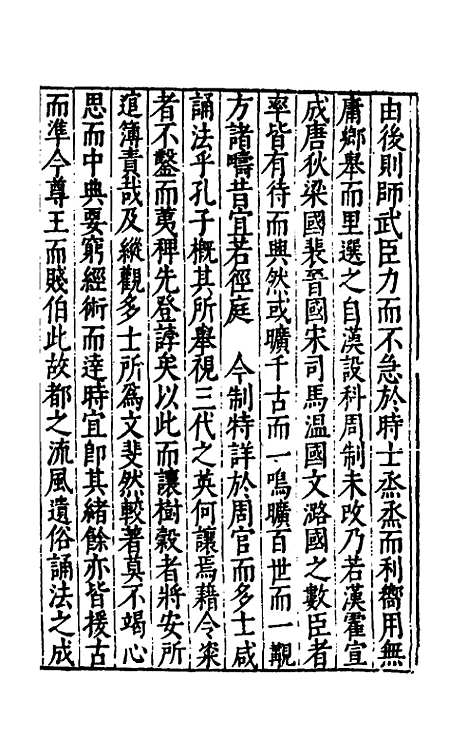 由後則師武臣力而不急於時士烝烝而利嚮用無
庸鄉舉而里選之自漢設科周制未改乃若漢霍宣
成唐狄梁國裴晉國宋司馬溫國文潞國之數臣者
率皆有待而興然或曠千古而一鳴曠百世而一覯
方諸疇昔宜若徑庭　今制特詳於周官而多士咸
誦法乎孔子概其所舉視三代之英何讓焉藉令粢
者不鑿而荑稗先登諄矣以此而讓樹穀者將安所
逭簿責哉及縱觀多士所為文斐然較著莫不竭心
思而中典要窮經術而達時宜即其緒餘亦皆援古
而準今尊王而賤伯此故都之流風遺俗誦法之成